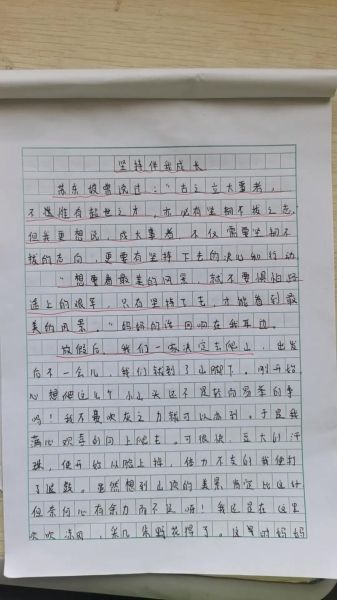 坚持伴我成长
苏东坡曾说过："古之立大事者，
不惟唯有超世之才，亦必有坚韧不拔之志，
但我更想说，成大事者，不仅需要坚韧不
拔的志向，更要有坚持下去的决心和行动
"想要看最美的风景，就不要惧怕路
途上的艰辛，只有坚持下去，才能看到最
美的风景。"妈妈的话回响在我耳边。
放假后，我们一家决定去爬山，出发
后不一会儿，我们就到了山脚下。刚开始
心想爬这么个小山头还不是轻而易举的事
吗！我不费吹灰之力就可以办到。于是我
满心欢喜的向上爬去。可很快，豆大的汗
珠，便开始从脸上掉，体力不支的我便打
了退鼓。虽然想到山顶的美景肯定比这好
但奈何心有余力而不足啊！我还是在这里
吹吹凉风，采几朵野花得了。这是时妈妈